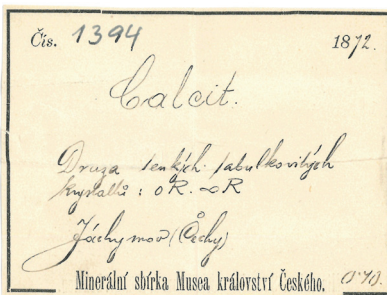 Čís. 1394 1872.
Calcit.
Druza tenkých tabulkovitých
krystallů: oR. ∞R
Jáchymov (Čechy)
Minerální sbírka Musea království Českého.